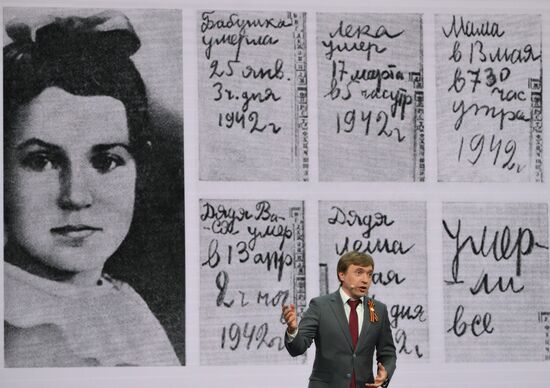 Бабушка
умерла
25 янв.
3ч. дня
1942 г
Лека
умер
17 марта
в 5 часутр
1942 г
Мама
в 13 мая
в 7 30
час
утра
1942 г
Дядя Ва-
ся умер
в 13 апр
2 ч ноч
1942 г
Дядя
Леша
дня
2 г
умер-
ли
все